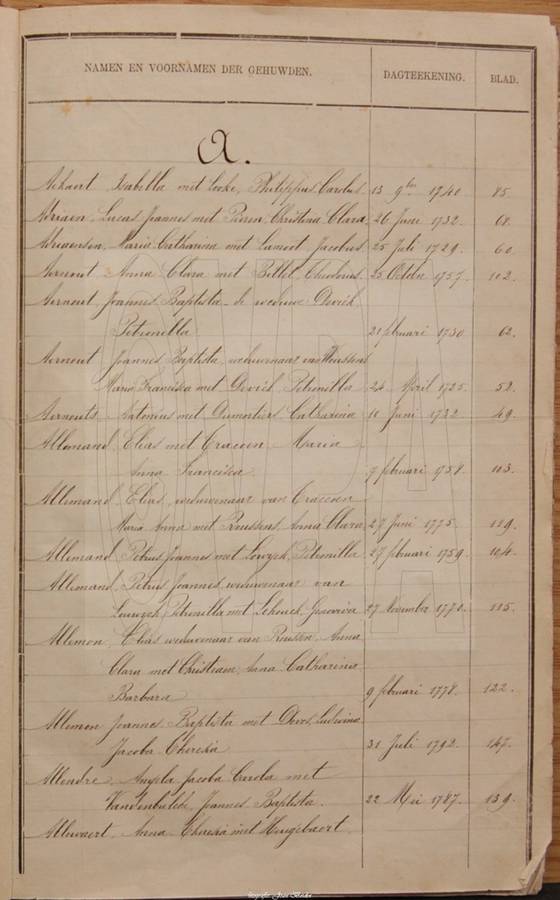 NAMEN EN VOORNAMEN DER GEHUWDEN. DAGTEEKENING. BLAD.
A.
Isabella met Philippus Carolus 13 9ber 1740 85.
Lucas Joannes met Christina Clara. 26 Juni 1732. 68.
Maria Catharina met Lamoot Jacobus 25 Juli 1729. 60.
Aernout Anna Clara met Billet, Theodorus 25 October 1757. 102.
Aernout Joannes Baptista de weduwe
Petronilla 21 februari 1730 62.
Aernout Joannes Baptista, weduwenaar van
Maria Francisca met Petronilla 24 April 1725. 52.
Aernouts Antonius met Catharina 10 Juni 1722. 49.
Allemand, Elias met Maria
Anna Francisca 7 februari 1758. 103.
Allemand, Elias, weduwenaar van
Maria Anna met Anna Clara 27 Juni 1775. 119.
Allemand, Petrus Joannes met Petronilla 27 februari 1759. 104.
Allemand, Petrus Joannes, weduwenaar van
Petronilla met 27 November 1770. 115.
Allemon, Elias weduwenaar van Anna
Clara met Christiaen, Anna Catharina
Barbara 9 februari 1778. 122.
Allemon Joannes Baptista met Ludovica
Jacoba Theresia 31 Juli 1792. 147.
Angela Jacoba Carola met
Vandenbulcke, Joannes Baptista. 22 Mei 1787. 139.
Allewaert, Anna Theresia met Huygebaert